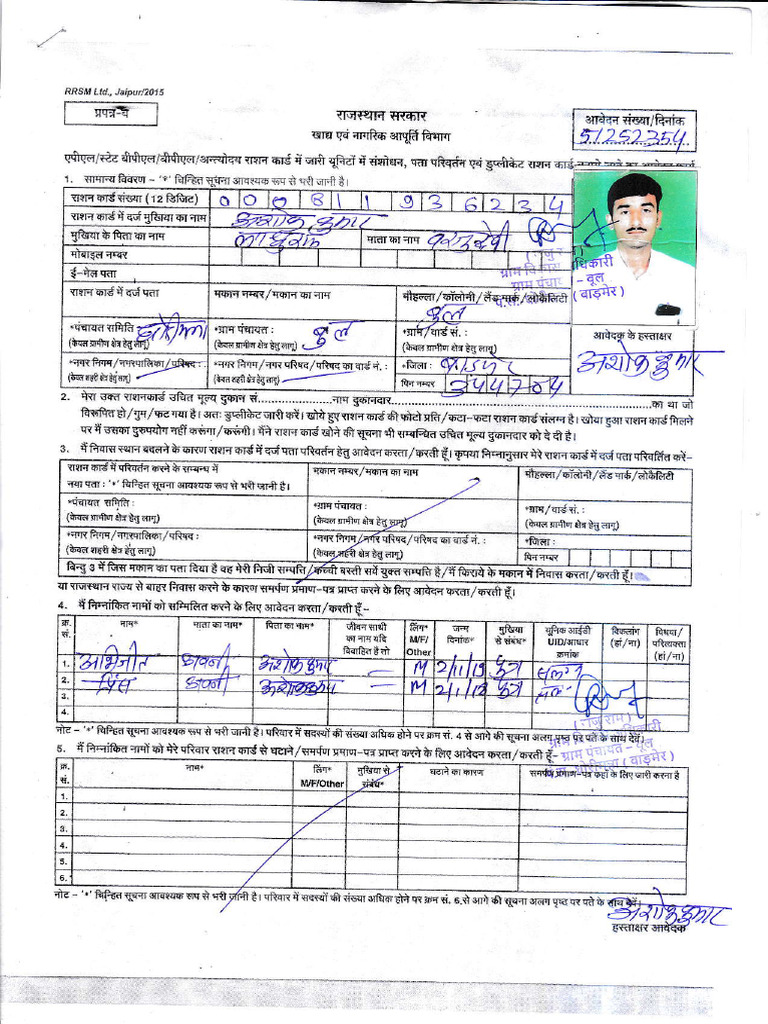 RRSM Ltd., Jaipur/2015
प्रपत्र-ब
राजस्थान सरकार
खाद्य एवं नागरिक आपूर्ति विभाग
आवेदन संख्या/दिनांक
51252354
एपीएल/स्टेट बीपीएल/बीपीएल/अन्त्योदय राशन कार्ड में जारी यूनिटों में संशोधन, पता परिवर्तन एवं डुप्लीकेट राशन कार्ड
1. सामान्य विवरण – '*' चिन्हित सूचना आवश्यक रूप से भरी जानी है।
राशन कार्ड संख्या (12 डिजिट) 000811936234
राशन कार्ड में दर्ज मुखिया का नाम अशोक कुमार
मुखिया के पिता का नाम माता का नाम
मोबाइल नम्बर
ई-मेल पता
राशन कार्ड में दर्ज पता मकान नम्बर/मकान का नाम मौहल्ला/कॉलोनी/लैंड मार्क/लोकैलिटी
*पंचायत समिति *ग्राम पंचायत : *ग्राम/वार्ड सं. :
(केवल ग्रामीण क्षेत्र हेतु लागू) (केवल ग्रामीण क्षेत्र हेतु लागू) (केवल ग्रामीण क्षेत्र हेतु लागू)
*नगर निगम/नगरपालिका/परिषद : *नगर निगम/नगर परिषद/परिषद का वार्ड नं. : *जिला : बाड़मेर
(केवल शहरी क्षेत्र हेतु लागू) (केवल शहरी क्षेत्र हेतु लागू) पिन नम्बर 344704
आवेदक के हस्ताक्षर
अशोक कुमार
2. मेरा उक्त राशनकार्ड उचित मूल्य दुकान सं. नाम दुकानदार का था जो
विरूपित हो/गुम/फट गया है। अतः डुप्लीकेट जारी करें। खोये हुए राशन कार्ड की फोटो प्रति/कटा-फटा राशन कार्ड संलग्न है। खोया हुआ राशन कार्ड मिलने
पर मैं उसका दुरुपयोग नहीं करूंगा/करूंगी। मैंने राशन कार्ड खोने की सूचना भी सम्बन्धित उचित मूल्य दुकानदार को दे दी है।
3. मैं निवास स्थान बदलने के कारण राशन कार्ड में दर्ज पता परिवर्तन हेतु आवेदन करता/करती हूँ। कृपया निम्नानुसार मेरे राशन कार्ड में दर्ज पता परिवर्तित करें–
राशन कार्ड में परिवर्तन करने के सम्बन्ध में मकान नम्बर/मकान का नाम मौहल्ला/कॉलोनी/लैंड मार्क/लोकैलिटी
नया पता : '*' चिन्हित सूचना आवश्यक रूप से भरी जानी है।
*पंचायत समिति : *ग्राम पंचायत : *ग्राम/वार्ड सं. :
(केवल ग्रामीण क्षेत्र हेतु लागू) (केवल ग्रामीण क्षेत्र हेतु लागू) (केवल ग्रामीण क्षेत्र हेतु लागू)
*नगर निगम/नगरपालिका/परिषद : *नगर निगम/नगर परिषद/परिषद का वार्ड नं. : *जिला :
(केवल शहरी क्षेत्र हेतु लागू) (केवल शहरी क्षेत्र हेतु लागू) पिन नम्बर
बिन्दु 3 में जिस मकान का पता दिया है वह मेरी निजी सम्पत्ति/कच्ची बस्ती सर्वे युक्त सम्पत्ति है/मैं किराये के मकान में निवास करता/करती हूँ।
या राजस्थान राज्य से बाहर निवास करने के कारण समर्पण प्रमाण-पत्र प्राप्त करने के लिए आवेदन करता/करती हूँ।
4. मैं निम्नांकित नामों को सम्मिलित करने के लिए आवेदन करता/करती हूँ–
क्र. सं. नाम* माता का नाम* पिता का नाम* जीवन साथी का नाम यदि विवाहित है तो लिंग* M/F/Other जन्म दिनांक* मुखिया से संबंध* यूनिक आईडी UID/आधार क्रमांक विकलांग (हां/ना) विधवा/परित्यक्ता (हां/ना)
1. अभिजीत अशोक कुमार M 2/11/19 पुत्र
2. प्रिंस अशोक कुमार M पुत्र
3.
4.
नोट – '*' चिन्हित सूचना आवश्यक रूप से भरी जानी है। परिवार में सदस्यों की संख्या अधिक होने पर क्रम सं. 4 से आगे की सूचना अलग पृष्ठ पर पते के साथ देवें।
5. मैं निम्नांकित नामों को मेरे परिवार राशन कार्ड से घटाने/समर्पण प्रमाण-पत्र प्राप्त करने के लिए आवेदन करता/करती हूँ–
क्र. सं. नाम* लिंग* M/F/Other मुखिया से संबंध* घटाने का कारण समर्पण प्रमाण-पत्र कहाँ के लिए जारी करना है
1.
2.
3.
4.
5.
6.
नोट – '*' चिन्हित सूचना आवश्यक रूप से भरी जानी है। परिवार में सदस्यों की संख्या अधिक होने पर क्रम सं. 6 से आगे की सूचना अलग पृष्ठ पर पते के साथ देवें।
अशोक कुमार
हस्ताक्षर आवेदक